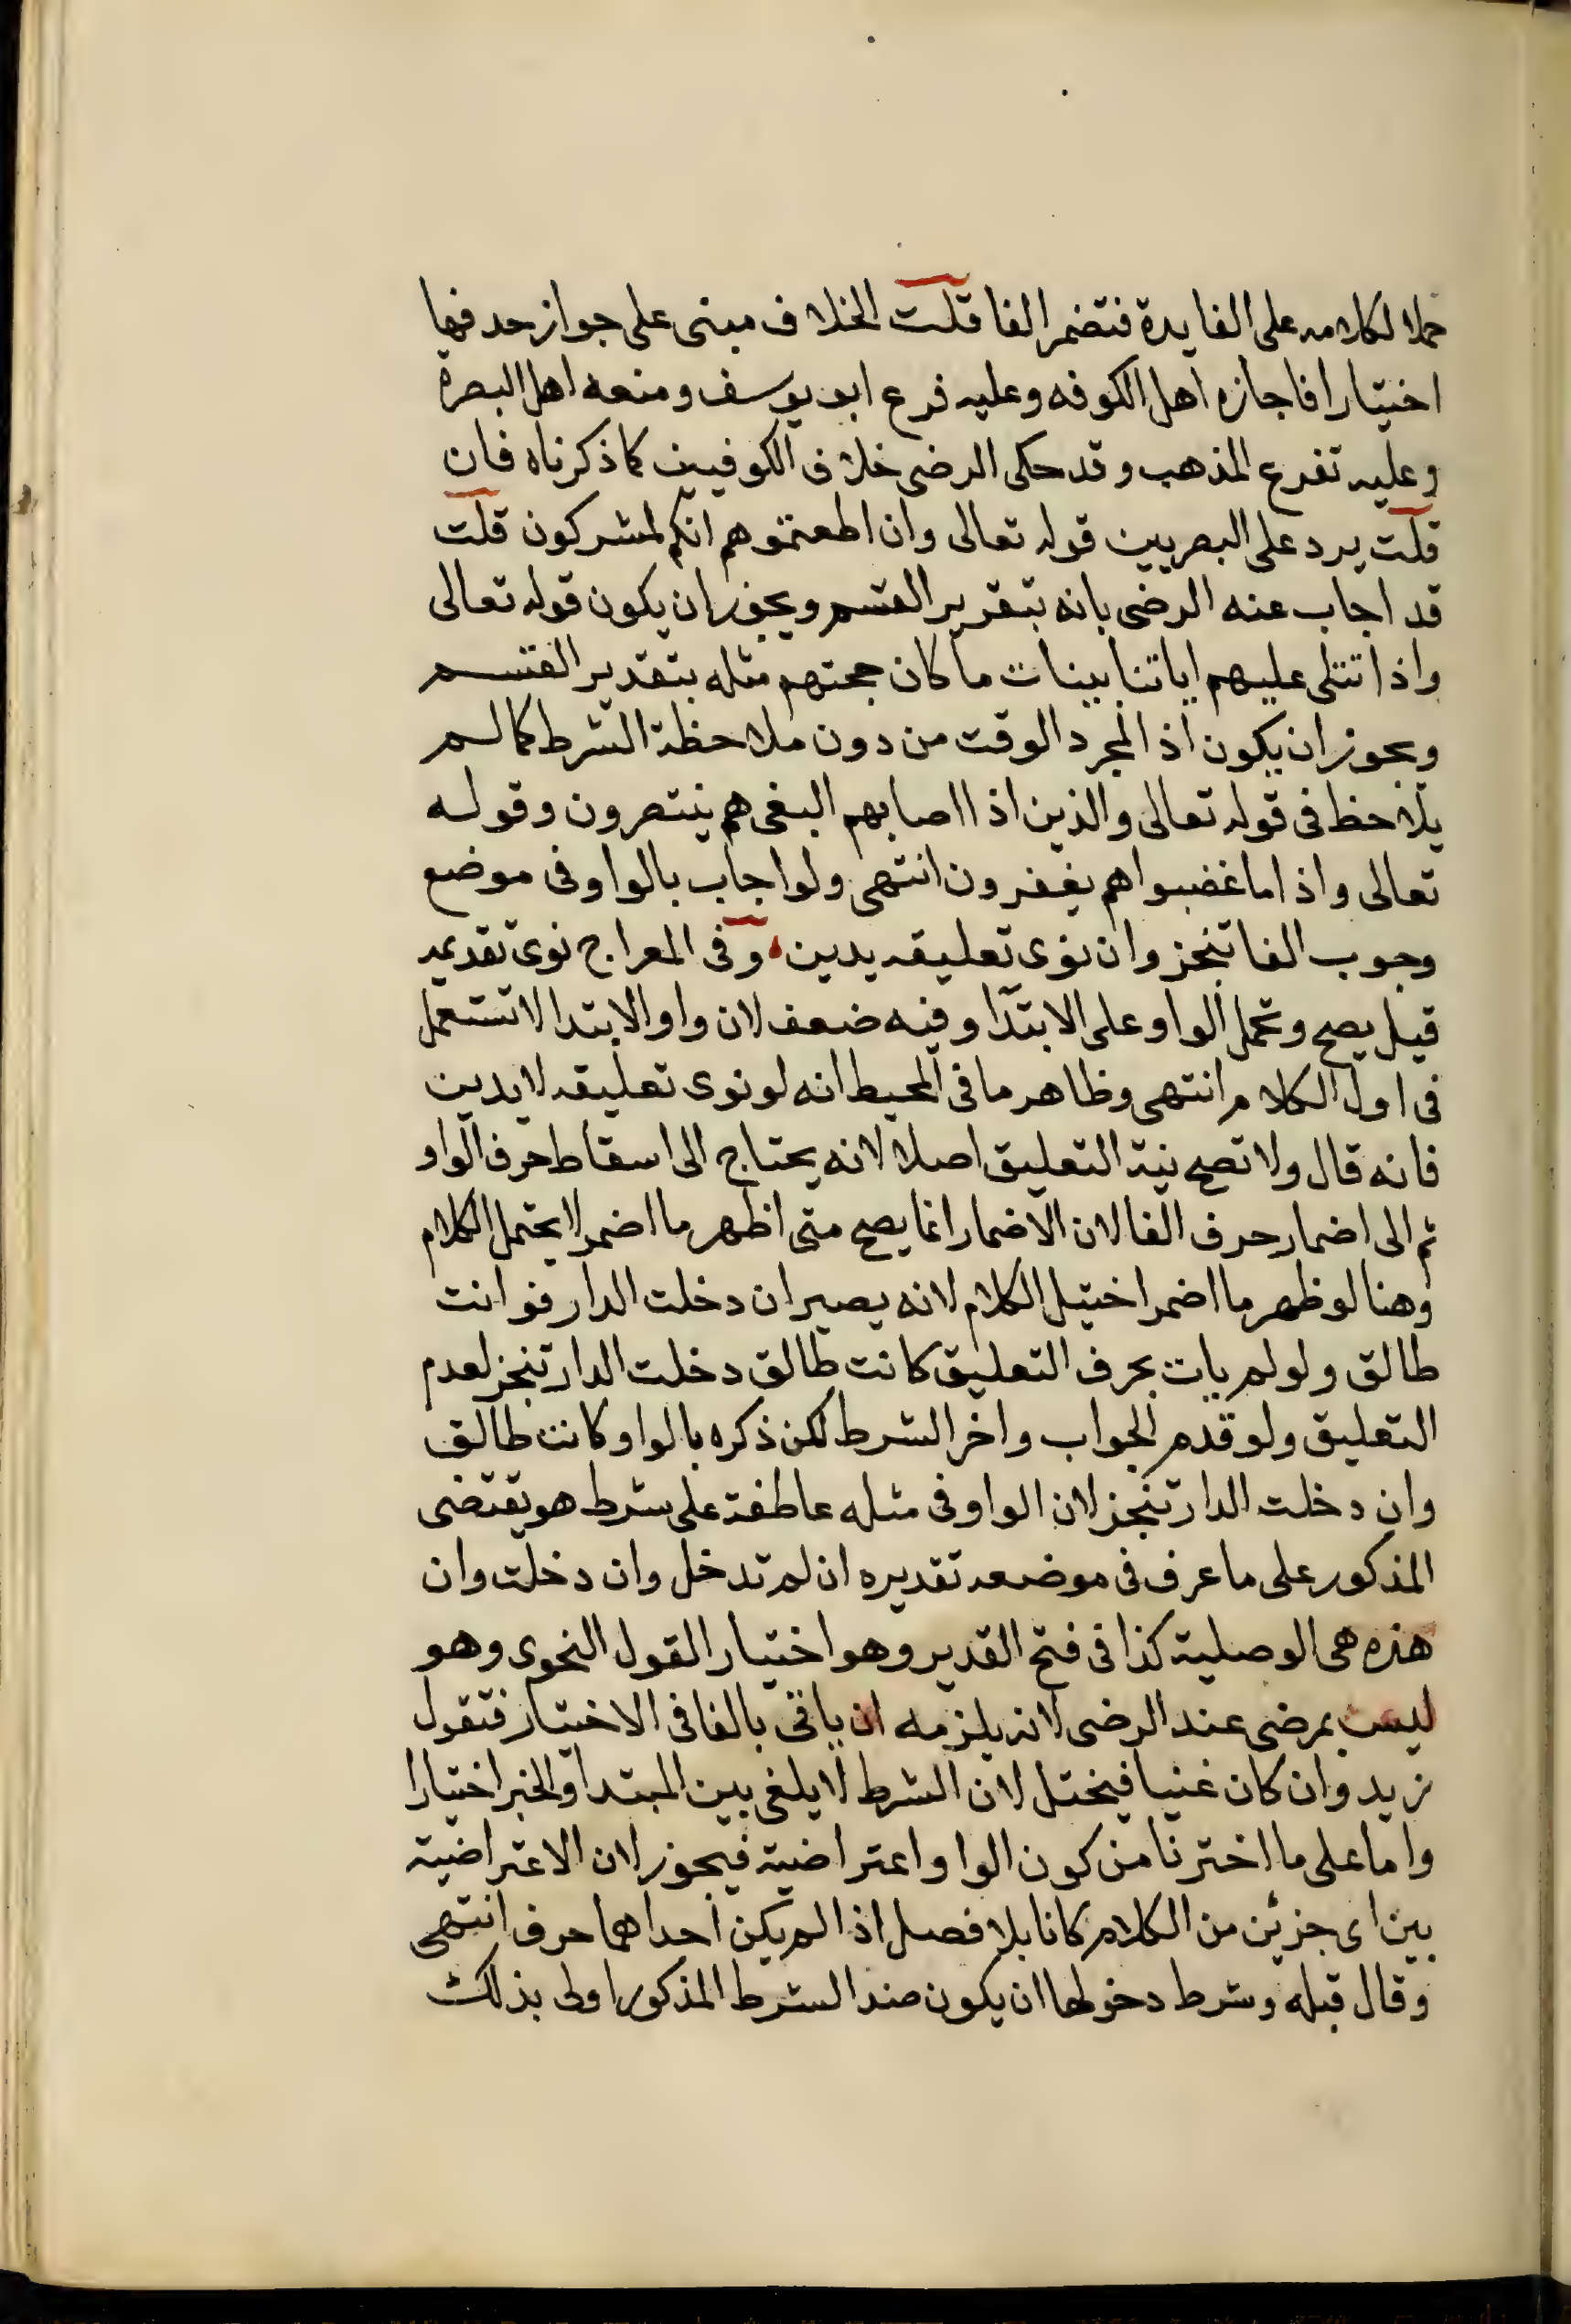 حملا لكلامه على الفايدة فتضمر الفا قلت الخلاف مبنى على جواز حدفها
اختيارا فاجازه اهل الكوفه وعليه فرع ابو يوسف ومنعه اهل البصرة
وعليه تفرع المذهب وقد حكى الرضى خلاف الكوفيين كما ذكرناه فان
قلت يرد على البصريين قوله تعالى وان اطعتموهم انكم لمشركون قلت
قد اجاب عنه الرضى بانه بتقرير القسم ويجوز ان يكون قوله تعالى
واذا تتلى عليهم اياتنا بينات ما كان حجتهم مثله بتقدير القسم
ويجوز ان يكون اذا لمجرد الوقت من دون ملاحظة الشرط كما لم
يلاحظ فى قوله تعالى والذين اذا اصابهم البغى هم ينتصرون وقوله
تعالى واذا ما غضبوا هم يغفرون انتهى ولو اجاب بالواو فى موضع
وجوب الفا تنجز وان نوى تعليقه يدين، وفى المعراج نوى تقديمه
قيل يصح وتحمل الواو على الابتدا وفيه ضعف لان واو الابتدا لا تستعمل
فى اول الكلام انتهى وظاهر ما فى المحيط انه لو نوى تعليقه لا يدين
فانه قال ولا تصح نية التعليق اصلا لانه يحتاج الى اسقاط حرف الواو
ثم الى اضمار حرف الفا لان الاضمار انما يصح متى اظهر ما اضمر لا يختل الكلام
وهنا لو ظهر ما اضمر اختيل الكلام لانه يصير ان دخلت الدار فوانت
طالق ولو لم يات بحرف التعليق كانت طالق دخلت الدار تنجز لعدم
التعليق ولو قدم الجواب واخر الشرط لكن ذكره بالواو كانت طالق
وان دخلت الدار تنجز لان الواو فى مثله عاطفة على شرط هو نقيض
المذكور على ما عرف فى موضعه تقديره ان لم تدخل وان دخلت وان
هذه هى الوصلية كذا فى فتح القدير وهو اختيار القول النحوى وهو
ليس بمرضى عند الرضى لانه يلزمه ان ياتى بالفا فى الاختيار فتقول
زيد وان كان غنيا فبخيل لان الشرط لا يلغى بين المبتدا والخبر اختيارا
واما على ما اخترنا من كون الواو اعتراضية فيجوز لان الاعتراضية
بين اى جزئين من الكلام كانا بلا فصل اذا لم يكن احداهما حرف انتهى
وقال قبله وشرط دخولها ان يكون ضد الشرط المذكور اولى بذلك